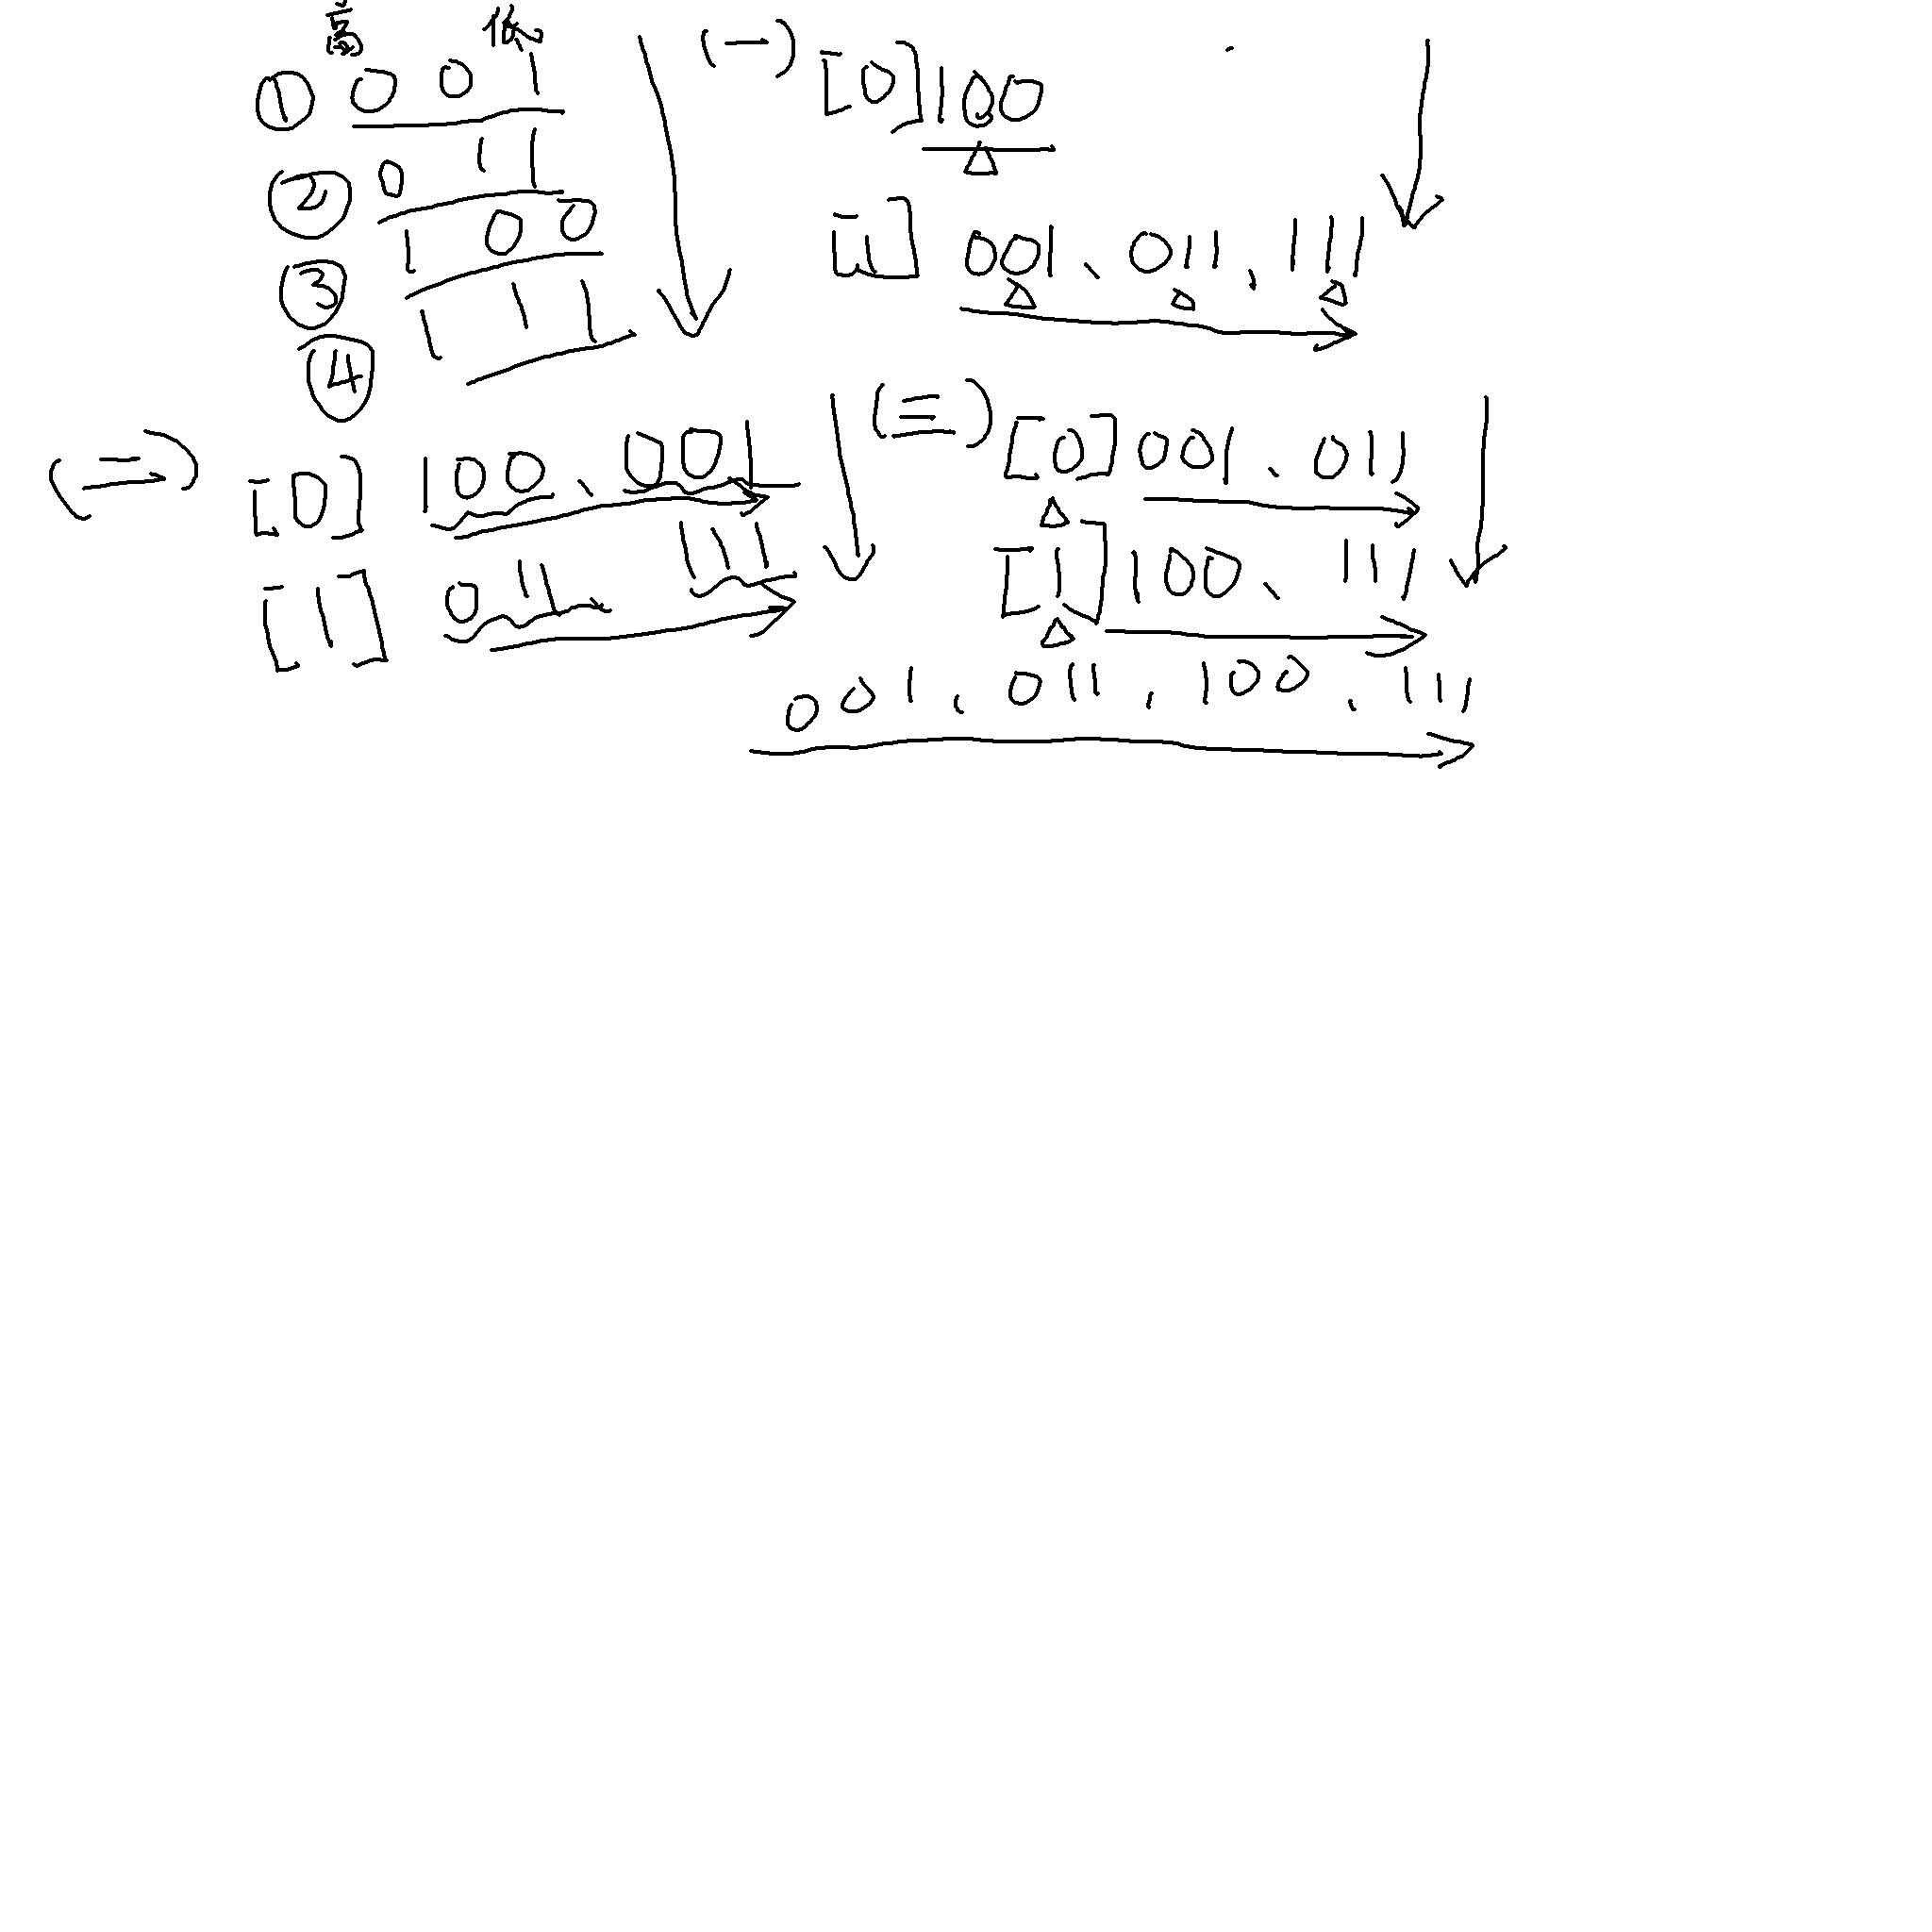 高 低
① 0 0 1
② 0 1 1
③ 1 0 0
④ 1 1 1
(一) [0] 100
[1] 001、011、111
(二) [0] 100、001
[1] 011、111
(三) [0] 001、011
[1] 100、111
001、011、100、111